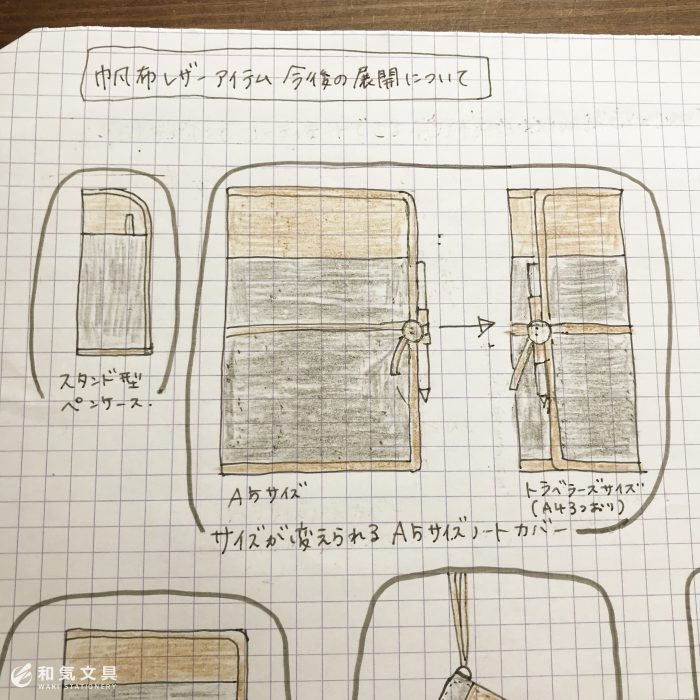 帆布レザーアイテム 今後の展開について
スタンド型
ペンケース.
A5サイズ
トラベラーズサイズ
(A4 3つおり)
サイズが変えられる A5サイズノートカバー
和気文具
WAKI STATIONERY